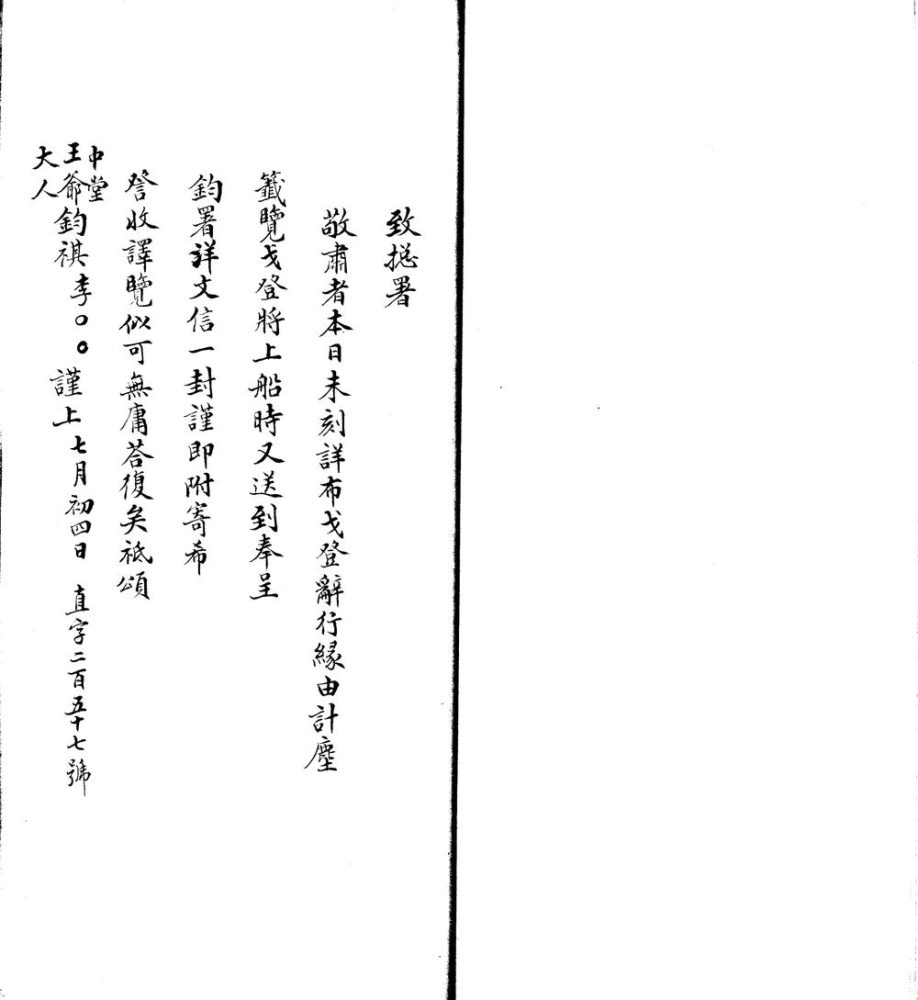 致揔署
敬肅者本日未刻詳布戈登辭行緣由計塵
籤覽戈登將上船時又送到奉呈
鈞署詳文信一封謹即附寄希
詧收譯覽似可無庸荅復矣祗頌
中堂
王爺
大人
鈞祺李○○謹上七月初四日 直字二百五十七號